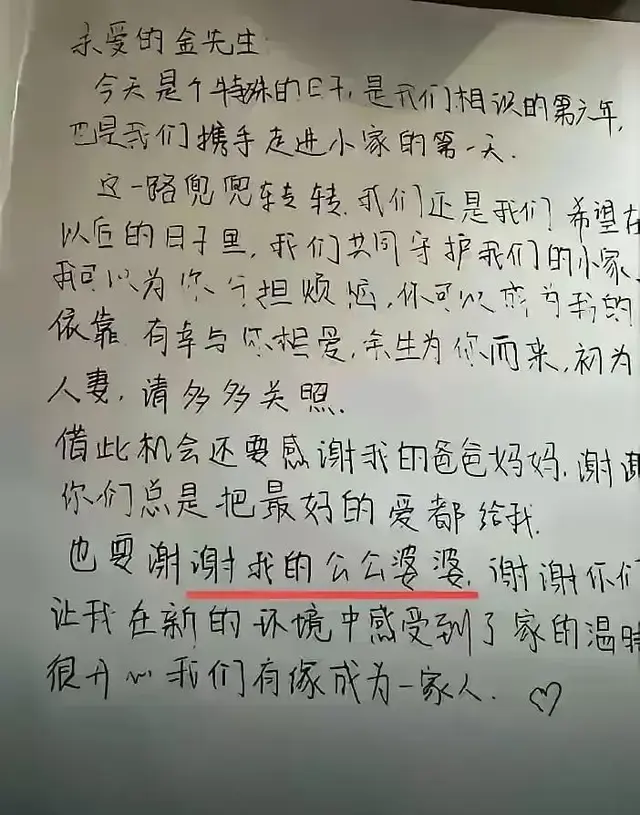 亲爱的金先生:
今天是个特殊的日子,是我们相识的第六年,
也是我们携手走进小家的第一天.
这一路兜兜转转.我们还是我们 希望在
以后的日子里,我们共同守护我们的小家、
我可以为你分担烦恼,你可以成为我的
依靠 有幸与你相爱,余生为你而来,初为
人妻,请多多关照.
借此机会还要感谢我的爸爸妈妈.谢谢
你们总是把最好的爱都给我.
也要谢谢我的公公婆婆.谢谢你们
让我在新的环境中感受到了家的温暖
很开心我们有缘成为一家人. ♡